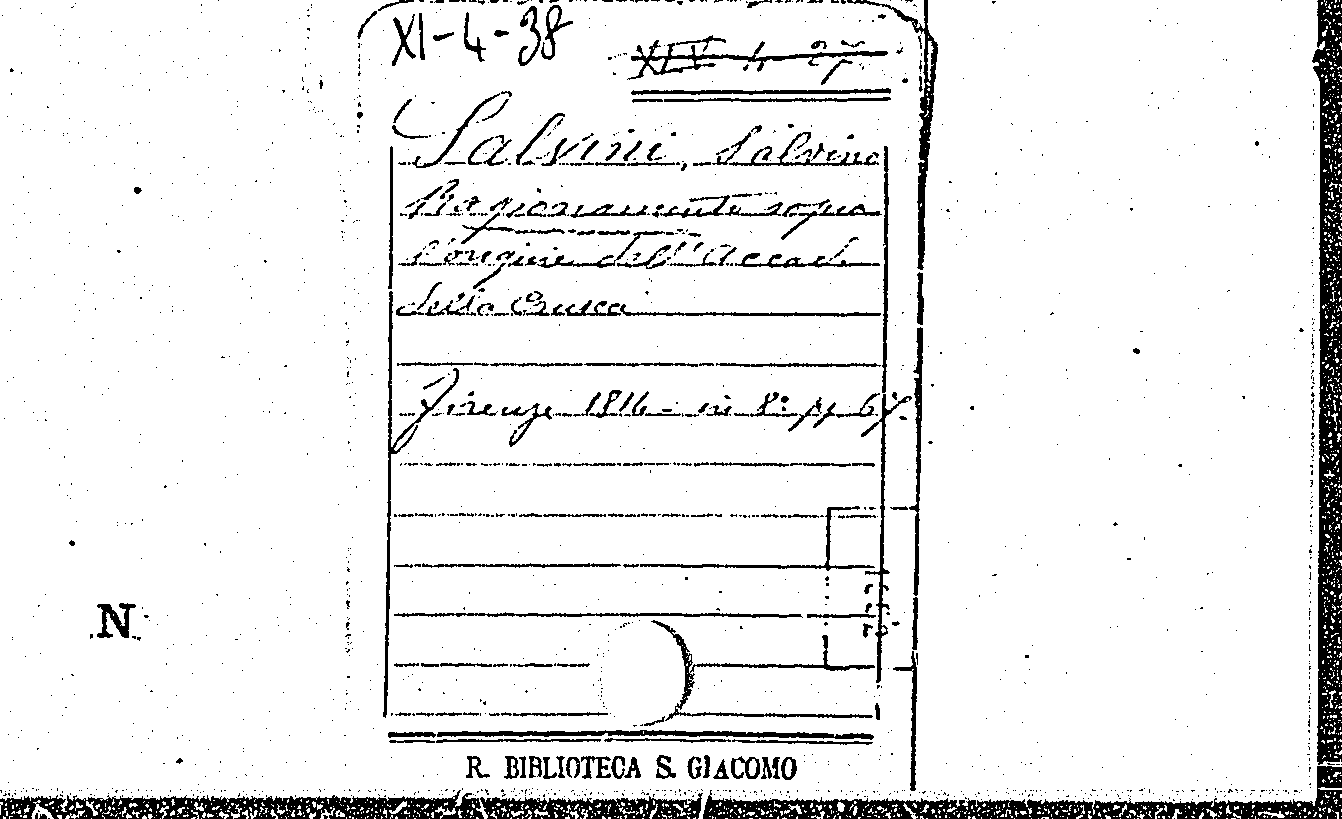 XI-4-38
XLV 4 27
Salvini, Salvino
Ragionamento sopra
l'origine dell'Accad.
della Crusca
Firenze 1814 - in 8º pp 67.
N
R. BIBLIOTECA S. GIACOMO